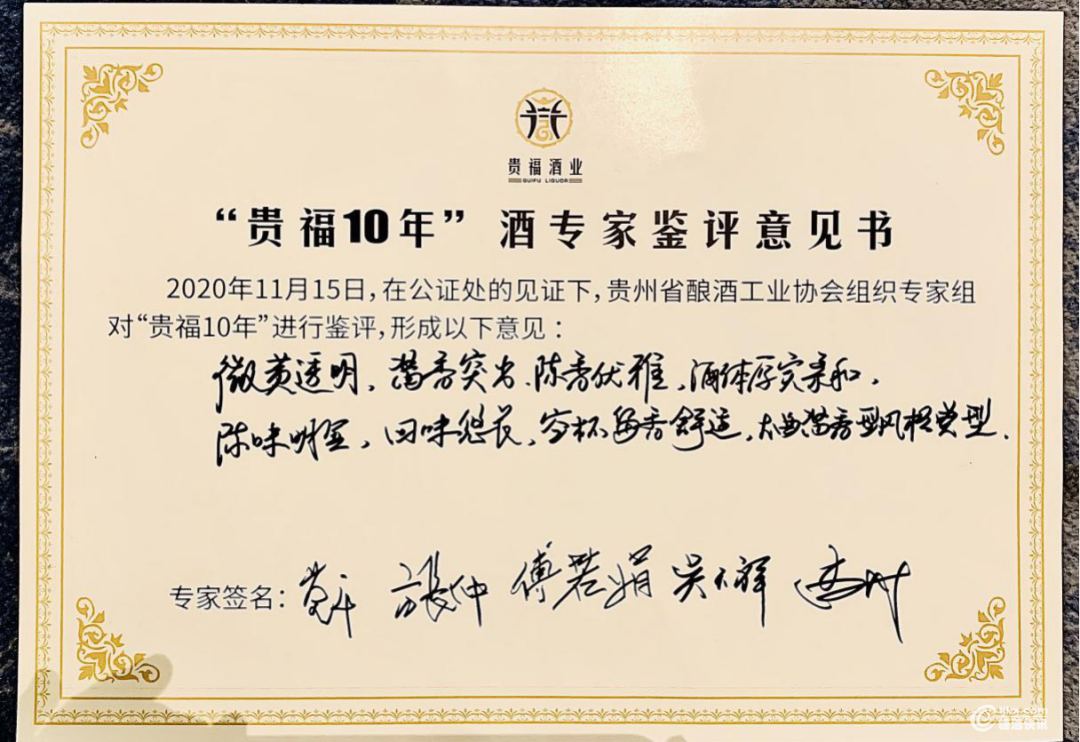 贵福酒业
GUIFU LIQUOR
“贵福10年”酒专家鉴评意见书
2020年11月15日,在公证处的见证下,贵州省酿酒工业协会组织专家组
对“贵福10年”进行鉴评,形成以下意见:
微黄透明、酱香突出、陈香优雅、酒体厚实柔和、
陈味明显、回味悠长、空杯留香舒适、大曲酱香型风格典型.
专家签名: 傅若娟